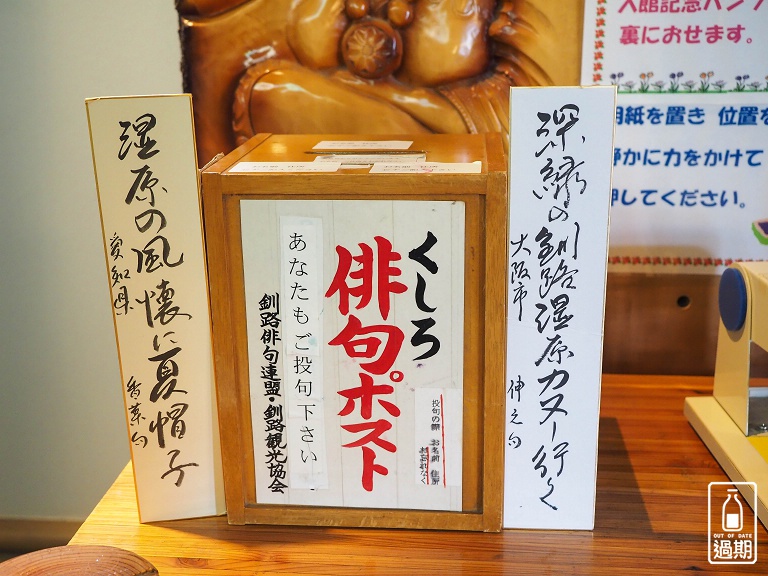 入館記念
裏におせます。
用紙を置き 位置を
静かに力をかけて
押してください。
深緑の釧路湿原カヌー行く
大阪市
伸之句
くしろ
俳句ポスト
投句の際 お名前 住所
お忘れなく
あなたもご投句下さい。
釧路俳句連盟・釧路観光協会
湿原の風懐に夏帽子
愛知県
香菜句
OUT OF DATE
過期